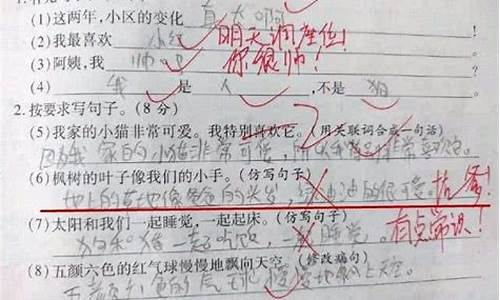 (1)这两年,小区的变化 真大啊
(2)我最喜欢 小红 明天调座位!
(3)阿姨,我 帅吧 你很帅!
(4) 我 是 人 ,不是 狗
2.按要求写句子。(8分)
(5)我家的小猫非常可爱。我特别喜欢它。(用关联词合成一句话)
因为我家的小猫非常可爱,所以我非常喜欢它。
(6)枫树的叶子像我们的小手。(仿写句子)
地上的草地像爸爸的头发,绿油油的很可爱。找爹!
(7)太阳和我们一起睡觉,一起起床。(仿写句子)
狗和猪一起吃饭,一起睡觉。 有点常识!
(8)五颜六色的红气球慢慢地飘向天空。(修改病句)
五颜六色的气球慢慢地飘上天空。